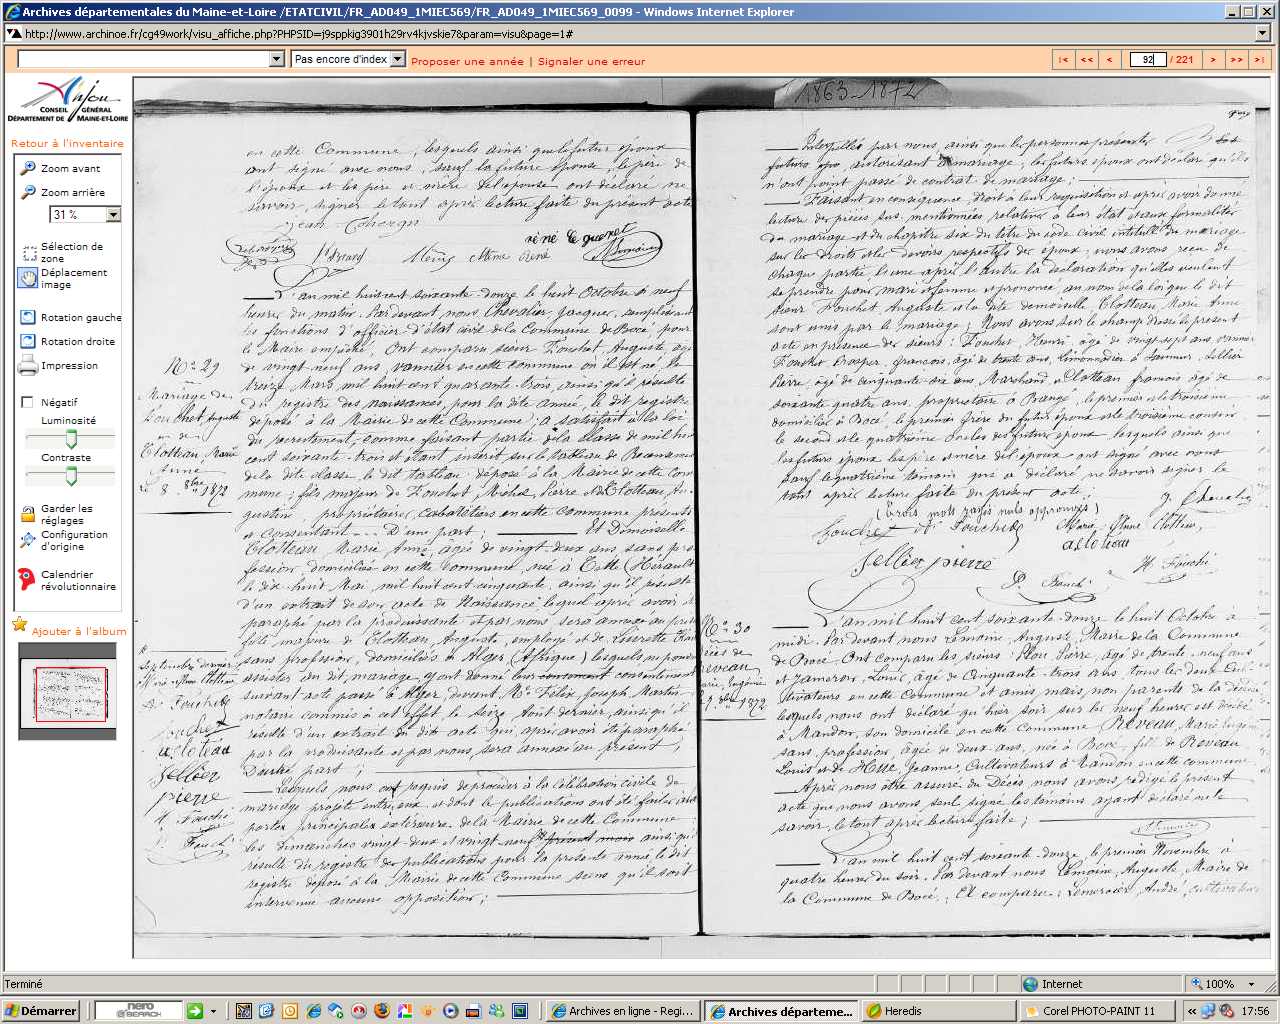 Archives départementales du Maine-et-Loire /ETATCIVIL/FR_AD049_1MIEC569/FR_AD049_1MIEC569_0099 - Windows Internet Explorer
http://www.archinoe.fr/cg49work/visu_affiche.php?PHPSID=j9sppkig3901h29rv4kjvskie7&param=visu&page=1#
Pas encore d'index
Proposer une année | Signaler une erreur
|< << < 92 / 221 > >> >|
Anjou
CONSEIL GÉNÉRAL
DÉPARTEMENT DE MAINE-ET-LOIRE
Retour à l'inventaire
Zoom avant
Zoom arrière
31 %
Sélection de zone
Déplacement image
Rotation gauche
Rotation droite
Impression
Négatif
Luminosité
Contraste
Garder les réglages
Configuration d'origine
Calendrier révolutionnaire
Ajouter à l'album
1863-1872
en cette Commune, lesquels ainsi que le futur époux
ont signé avec nous, sauf la future épouse, le père de
l'époux et les père et mère de l'épouse ont déclaré ne
savoir signer le tout après lecture faite du présent acte
rené le guenet
L'an mil huit cent soixante douze le huit Octobre à neuf
heures du matin. Par devant nous Chevalier, Jacques, remplissant
les fonctions d'officier d'état civil de la Commune de Bocé pour
le Maire empêché, Ont comparu sieur Fouchet Auguste, âgé
de vingt neuf ans, vannier en cette commune où il est né, le
treize Mars mil huit cent quarante trois, ainsi qu'il résulte
du registre des naissances, pour la dite année, le dit registre
déposé à la Mairie de cette Commune; a satisfait à la loi
du recrutement, comme faisant partie de la classe de mil huit
cent soixante-trois et étant inscrit sur le tableau de Recensement
de la dite classe le dit tableau déposé à la Mairie de cette Com
mune; fils majeur de Fouchet, Michel Pierre et de Clotteau, Au
gustine propriétaires, cabaretiers en cette commune présents
et Consentant D'une part; Et Demoiselle
Clotteau Marie Anne, âgée de vingt-deux ans sans pro
fession domiciliée en cette Commune, née à Cette (Hérault)
le dix huit Mai, mil huit cent cinquante, ainsi qu'il résulte
d'un extrait de son acte de Naissance lequel après avoir été
paraphé par la produisante et par nous sera annexé au présent
fille majeure de Clotteau, Auguste, employé et de
sans profession, domiciliés à Alger (Afrique) lesquels ne pouvant
assister au dit mariage y ont donné leur consentement
suivant acte passé à Alger, devant Me Félix Joseph Martin
notaire commis à cet effet le seize Août dernier, ainsi qu'il
résulte d'un extrait du dit acte qui, après avoir été paraphé
par la produisante et par nous, sera annexé au présent,
D'autre part;
Lesquels nous ont requis de procéder à la célébration civile du
mariage projeté entre eux et dont les publications ont été faites aux
portes principales extérieures de la Mairie de cette Commune
les dimanches vingt deux et vingt neuf ainsi qu'il
résulte du registre des publications pour la présente année le dit
registre déposé à la Mairie de cette Commune sans qu'il soit
intervenu aucune opposition;
No 29
Mariage de
Fouchet Auguste
et de
Clotteau Marie
Anne
le 8 8bre 1872
Sellier
pierre
Interpellés par nous, ainsi que les personnes présentes
n'ont point passé de contrat de mariage;
Faisant en conséquence, droit à leur réquisition et après avoir donné
lecture des pièces sus mentionnées relatives à leur état et aux formalités
du mariage et du chapitre six du titre du code civil intitulé du mariage
sur les droits et les devoirs respectifs des époux; nous avons reçu de
chaque partie l'une après l'autre la déclaration qu'elles veulent
se prendre pour mari et femme et prononcé au nom de la loi que le dit
sieur Fouchet Auguste et la dite demoiselle Clotteau Marie Anne
sont unis par le mariage; Nous avons sur le champ dressé le présent
acte en présence des sieurs: Fouchet, Henri, âgé de vingt sept ans, vannier
Fouchet Prosper, françois, âgé de trente ans, limonadier à Saumur, Sellier
Pierre, âgé de cinquante six ans Marchand et Clotteau françois âgé de
soixante quatre ans, propriétaire à Brange, le premier et le troisième
domiciliés à Bocé, le premier frère du futur époux et le troisième cousin
le second et le quatrième oncles des futurs époux lesquels ainsi que
les futurs époux les père et mère de l'époux ont signé avec nous
sauf le quatrième témoin qui a déclaré ne savoir signer le
tout après lecture faite du présent acte;
(trois mots rayés nuls approuvés)
J. Chevalier
Marie Anne Clotteau
Sellier pierre
P. Fouché
H. Fouché
No 30
Décès de
Reveau
L'an mil huit cent soixante douze le huit Octobre à
midi Par devant nous Lemoine Auguste Maire de la Commune
de Bocé. Ont comparu les sieurs: Pierre, âgé de trente neuf ans
et Jameron, Louis, âgé de Cinquante-trois ans tous les deux Cul
tivateurs en cette Commune et amis mais non parents de la décédée
lesquels nous ont déclaré qu'hier soir sur les neuf heures est décédée
à Mandon, son domicile en cette Commune Reveau, Marie Eugénie
sans profession, âgée de deux ans, née à Bocé, fille de Reveau
Louis et de Jeanne, Cultivateurs à en cette commune.
Après nous être assuré du Décès nous avons rédigé le présent
acte que nous avons seul signé les témoins ayant déclaré ne le
savoir, le tout après lecture faite;
L'an mil huit cent soixante douze le premier Novembre à
quatre heures du soir. Par devant nous Lemoine, Auguste, Maire de
la Commune de Bocé. Est comparu: Lemercier, André, cultivateur
Terminé
Internet
100%
Démarrer
nero
SEARCH
Archives en ligne - Regi...
Archives départeme...
Heredis
Corel PHOTO-PAINT 11
17:56